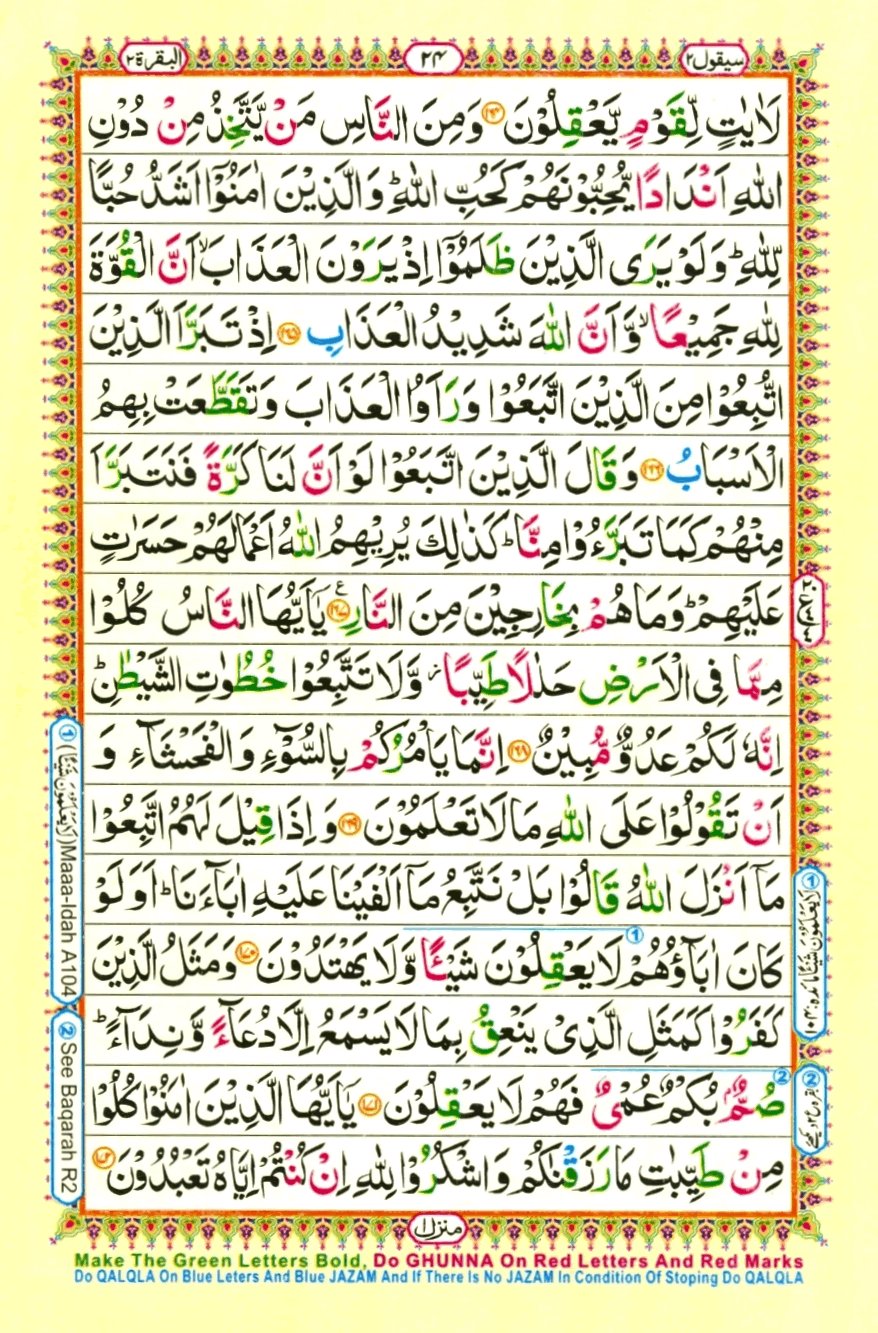 سيقول ٢
٢٤
البقرة ٢
لَاٰیٰتٍ لِّقَوْمٍ یَّعْقِلُوْنَ ۝۱۶۴ وَمِنَ النَّاسِ مَنْ یَّتَّخِذُ مِنْ دُوْنِ
اللّٰهِ اَنْدَادًا یُّحِبُّوْنَهُمْ كَحُبِّ اللّٰهِ ؕ وَالَّذِیْنَ اٰمَنُوْۤا اَشَدُّ حُبًّا
لِّلّٰهِ ؕ وَلَوْ یَرَی الَّذِیْنَ ظَلَمُوْۤا اِذْ یَرَوْنَ الْعَذَابَ ۙ اَنَّ الْقُوَّةَ
لِلّٰهِ جَمِیْعًا ۙ وَّاَنَّ اللّٰهَ شَدِیْدُ الْعَذَابِ ۝۱۶۵ اِذْ تَبَرَّاَ الَّذِیْنَ
اتُّبِعُوْا مِنَ الَّذِیْنَ اتَّبَعُوْا وَرَاَوُا الْعَذَابَ وَتَقَطَّعَتْ بِهِمُ
الْاَسْبَابُ ۝۱۶۶ وَقَالَ الَّذِیْنَ اتَّبَعُوْا لَوْ اَنَّ لَنَا كَرَّةً فَنَتَبَرَّاَ
مِنْهُمْ كَمَا تَبَرَّءُوْا مِنَّا ؕ كَذٰلِكَ یُرِیْهِمُ اللّٰهُ اَعْمَالَهُمْ حَسَرٰتٍ
عَلَیْهِمْ ؕ وَمَا هُمْ بِخٰرِجِیْنَ مِنَ النَّارِ ۝۱۶۷ۧ یٰۤاَیُّهَا النَّاسُ كُلُوْا
مِمَّا فِی الْاَرْضِ حَلٰلًا طَیِّبًا ۖؗ وَّلَا تَتَّبِعُوْا خُطُوٰتِ الشَّیْطٰنِ ؕ
اِنَّهٗ لَكُمْ عَدُوٌّ مُّبِیْنٌ ۝۱۶۸ اِنَّمَا یَاْمُرُكُمْ بِالسُّوْٓءِ وَالْفَحْشَآءِ وَ
اَنْ تَقُوْلُوْا عَلَی اللّٰهِ مَا لَا تَعْلَمُوْنَ ۝۱۶۹ وَاِذَا قِیْلَ لَهُمُ اتَّبِعُوْا
مَاۤ اَنْزَلَ اللّٰهُ قَالُوْا بَلْ نَتَّبِعُ مَاۤ اَلْفَیْنَا عَلَیْهِ اٰبَآءَنَا ؕ اَوَلَوْ
كَانَ اٰبَآؤُهُمْ ① لَا یَعْقِلُوْنَ شَیْـًٔا وَّلَا یَهْتَدُوْنَ ۝۱۷۰ وَمَثَلُ الَّذِیْنَ
كَفَرُوْا كَمَثَلِ الَّذِیْ یَنْعِقُ بِمَا لَا یَسْمَعُ اِلَّا دُعَآءً وَّنِدَآءً ؕ
② صُمٌّۢ بُكْمٌ عُمْیٌ فَهُمْ لَا یَعْقِلُوْنَ ۝۱۷۱ یٰۤاَیُّهَا الَّذِیْنَ اٰمَنُوْا كُلُوْا
مِنْ طَیِّبٰتِ مَا رَزَقْنٰكُمْ وَاشْكُرُوْا لِلّٰهِ اِنْ كُنْتُمْ اِیَّاهُ تَعْبُدُوْنَ ۝۱۷۲
① (لَا يَعْلَمُوْنَ شَيْئًا) Maaa-Idah A104
② See Baqarah R2
① لَا يَعْلَمُوْنَ شَيْئًا مائدہ: ۱۰۴
منزل ١
Make The Green Letters Bold, Do GHUNNA On Red Letters And Red Marks
Do QALQLA On Blue Leters And Blue JAZAM And If There Is No JAZAM In Condition Of Stoping Do QALQLA